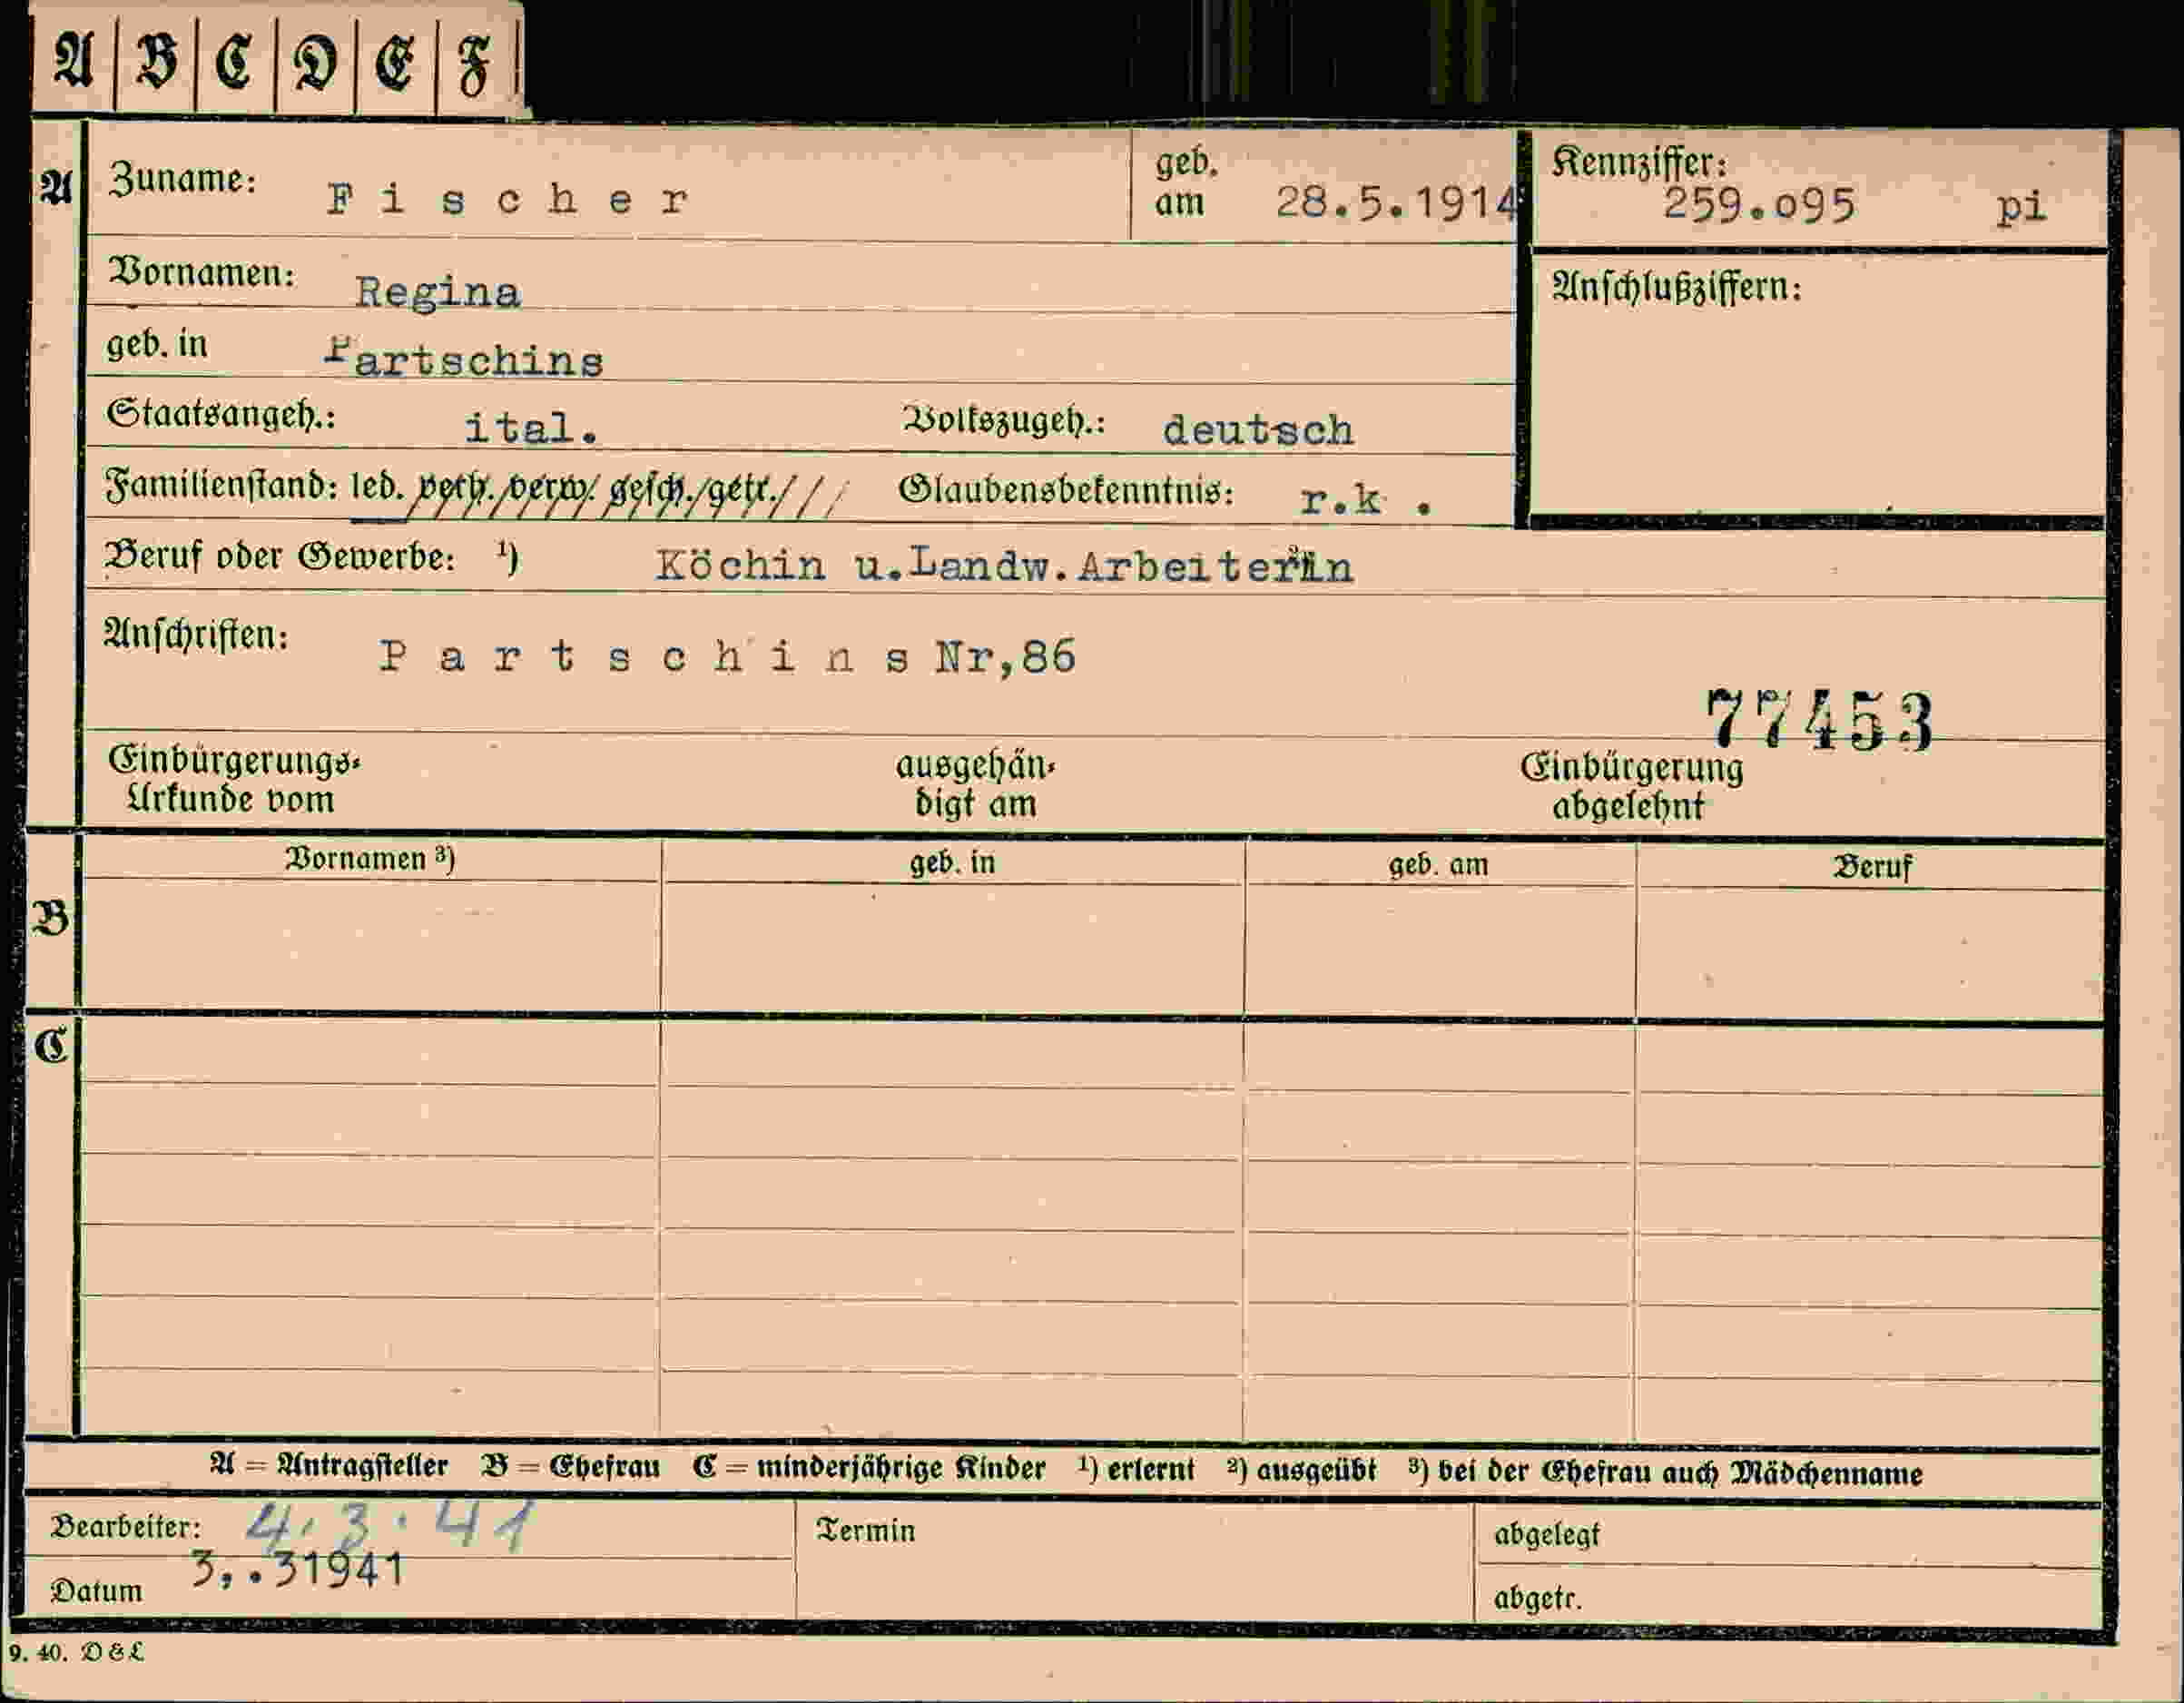 A B C D E F
A Zuname: Fischer geb. am 28.5.1914 Kennziffer: 259.o95 pi
Vornamen: Regina Anschlußziffern:
geb. in Partschins
Staatsangeh.: ital. Volkszugeh.: deutsch
Familienstand: led. verh. verw. gesch. getr. Glaubensbekenntnis: r.k .
Beruf oder Gewerbe: ¹) Köchin u.Landw.Arbeiterin
Anschriften: Partschins Nr,86
77453
Einbürgerungs-Urkunde vom ausgehändigt am Einbürgerung abgelehnt
Vornamen ³) geb. in geb. am Beruf
B
C
A = Antragsteller B = Ehefrau C = minderjährige Kinder ¹) erlernt ²) ausgeübt ³) bei der Ehefrau auch Mädchenname
Bearbeiter: 4.3.41 Termin abgelegt
Datum 3,.31941 abgetr.
9. 40. D & L